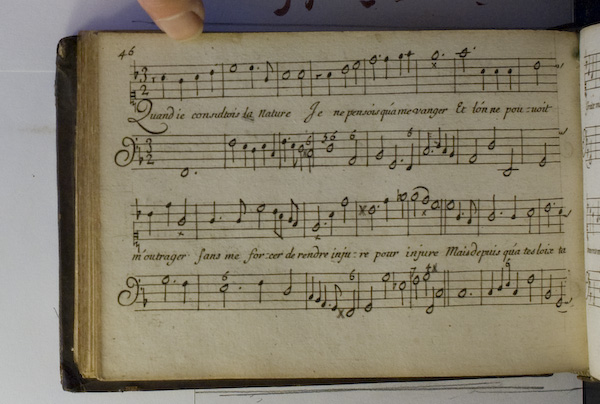 46
Quand ie consultois la nature Je ne pensois qu'a me vanger Et l'on ne pou=uoit
m'outrager sans me for:cer de rendre inju:re pour injure Mais depuis qu'a tes loix ta